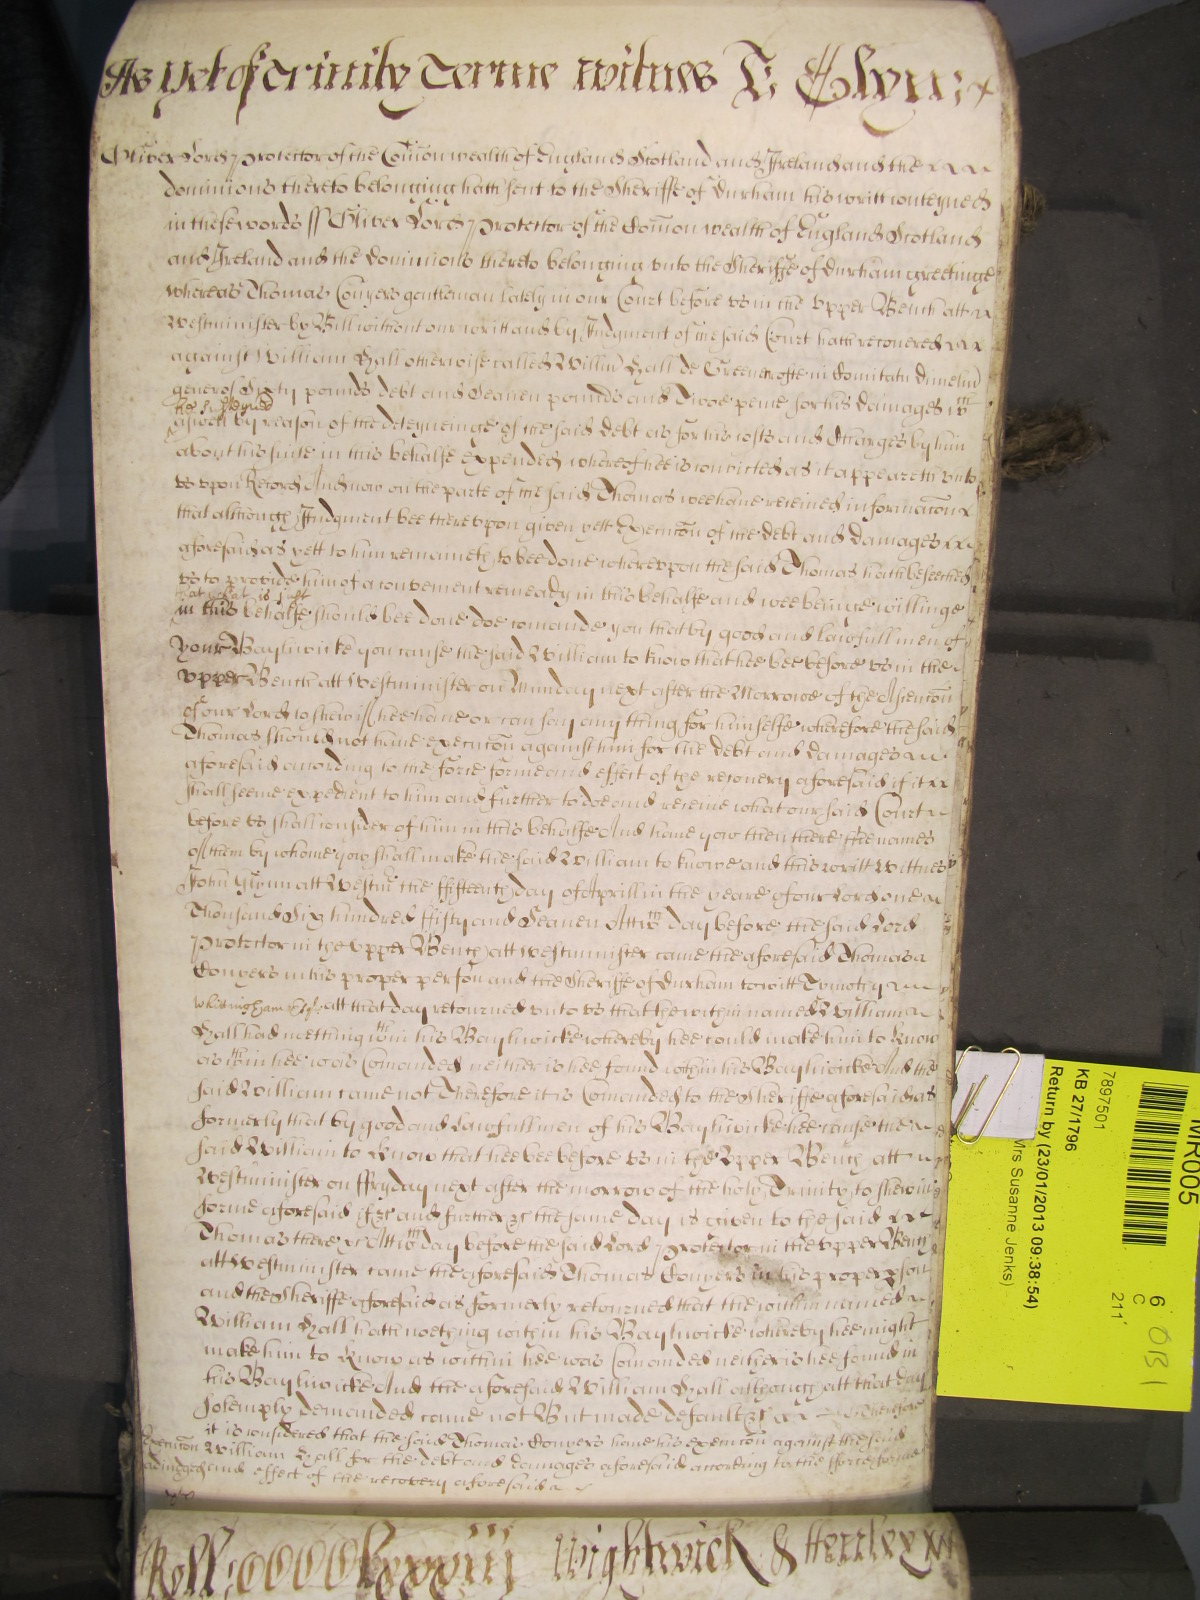 As yet of Trinity Terme witnes J: Glynn:
Oliver Lord Protector of the Com̄on wealth of England Scotland and Ireland and the
dominions thereto belonging hath sent to the Sheriffe of Durham his writt conteyned
in these words ss Oliver Lord Protector of the Com̄on wealth of England Scotland
and Ireland and the dominions thereto belonging vnto the Sheriffe of Durham greetinge
whereas Thomas Conyers gentleman lately in our Court before vs in the vpper Bench att
Westminister by Bill without our writt and by Judgment of the said Court hath recovered
against William Hall otherwise called Willm̄ Hall de Greencrofte in Comitatu Dunelm̄
generos Sixty pounds debt and Seaven pounds and Twoe pence for his damages wch
hee susteyned
aswell by reason of the deteyneinge of the said debt as for his costs and Charges by him
about his suite in this behalfe expended whereof hee is convicted as it appeareth vnto
vs vpon Record And now on the parte of the said Thomas wee have received informac̄on
that although Judgment bee therevpon given yett Execuc̄on of the debt and damages
aforesaid as yett to him remaineth to bee done wherevpon the said Thomas hath beseeched
vs to provide him of a convenient remeady in this behalfe and wee beinge willinge
that what is just
in this behalfe should bee done doe comande you that by good and lawfull men of
your Baylwicke you cause the said William to know that hee bee before vs in the
vpper Bench att Westminister on Munday next after the Morrowe of the Asencōn
of our Lord to shew if hee have or can say any thing for himselfe wherefore the said
Thomas should not have execucōn against him for the debt and damages
aforesaid according to the force forme and effect of the recovery aforesaid if it
shall seeme expedient to him and further to doe and receive what our said Court
before vs shall consider of him in this behalfe And have you then there the names
of them by whome you shall make the said William to knowe and this writt Wittnes
John Glynn att Westmr the ffifteenth day of Aprill in the yeare of our Lord one
Thousand Six hundred ffifty and Seaven Att wch day before the said Lord
Protector in the vpper Bench att Westminister came the aforesaid Thomas
Conyers in his proper person and the Sheriffe of Durham towitt Timothy
Whittingham Esqr: att that day retourned vnto vs that the within named William
Hall had noething wthin his Baylwicke whereby hee could make him to know
as wthin hee was Comanded neither is hee found within his Baylwicke And the
said William came not Therefore it is Comanded to the Sheriffe aforesaid as
formerly that by good and Lawfull men of his Baylwicke hee cause the
said William to know that hee bee before vs in the Vpper Bench att
Westminister on ffryday next after the morrow of the holy Trinity to shew in
forme aforesaid if &c and further &c the same day is given to the said
Thomas there &c Att wch day before the said Lord Protector in the vpper Bench
att Westminister came the aforesaid Thomas Conyers in his proper person
and the Sheriffe aforesaid as formerly retourned that the within named
William Hall hath noething within his Baylwicke whereby hee might
make him to know as within hee was Comanded neither is hee found in
his Baylwicke And the aforesaid William Hall although att that day
solemply demanded came not But made default &c Therefore
it is considered that the said Thomas Conyers have his execucōn against the said
Execucōn William Hall for the debt and damages aforesaid according to the fforce forme
adiudged and effect of the recovery aforesaid
Roll: Wightwick & Henley
MR005
7897501
KB 27/1796
Return by (23/01/2013 09:38:54)
Mrs Susanne Jenks)
6
C
211